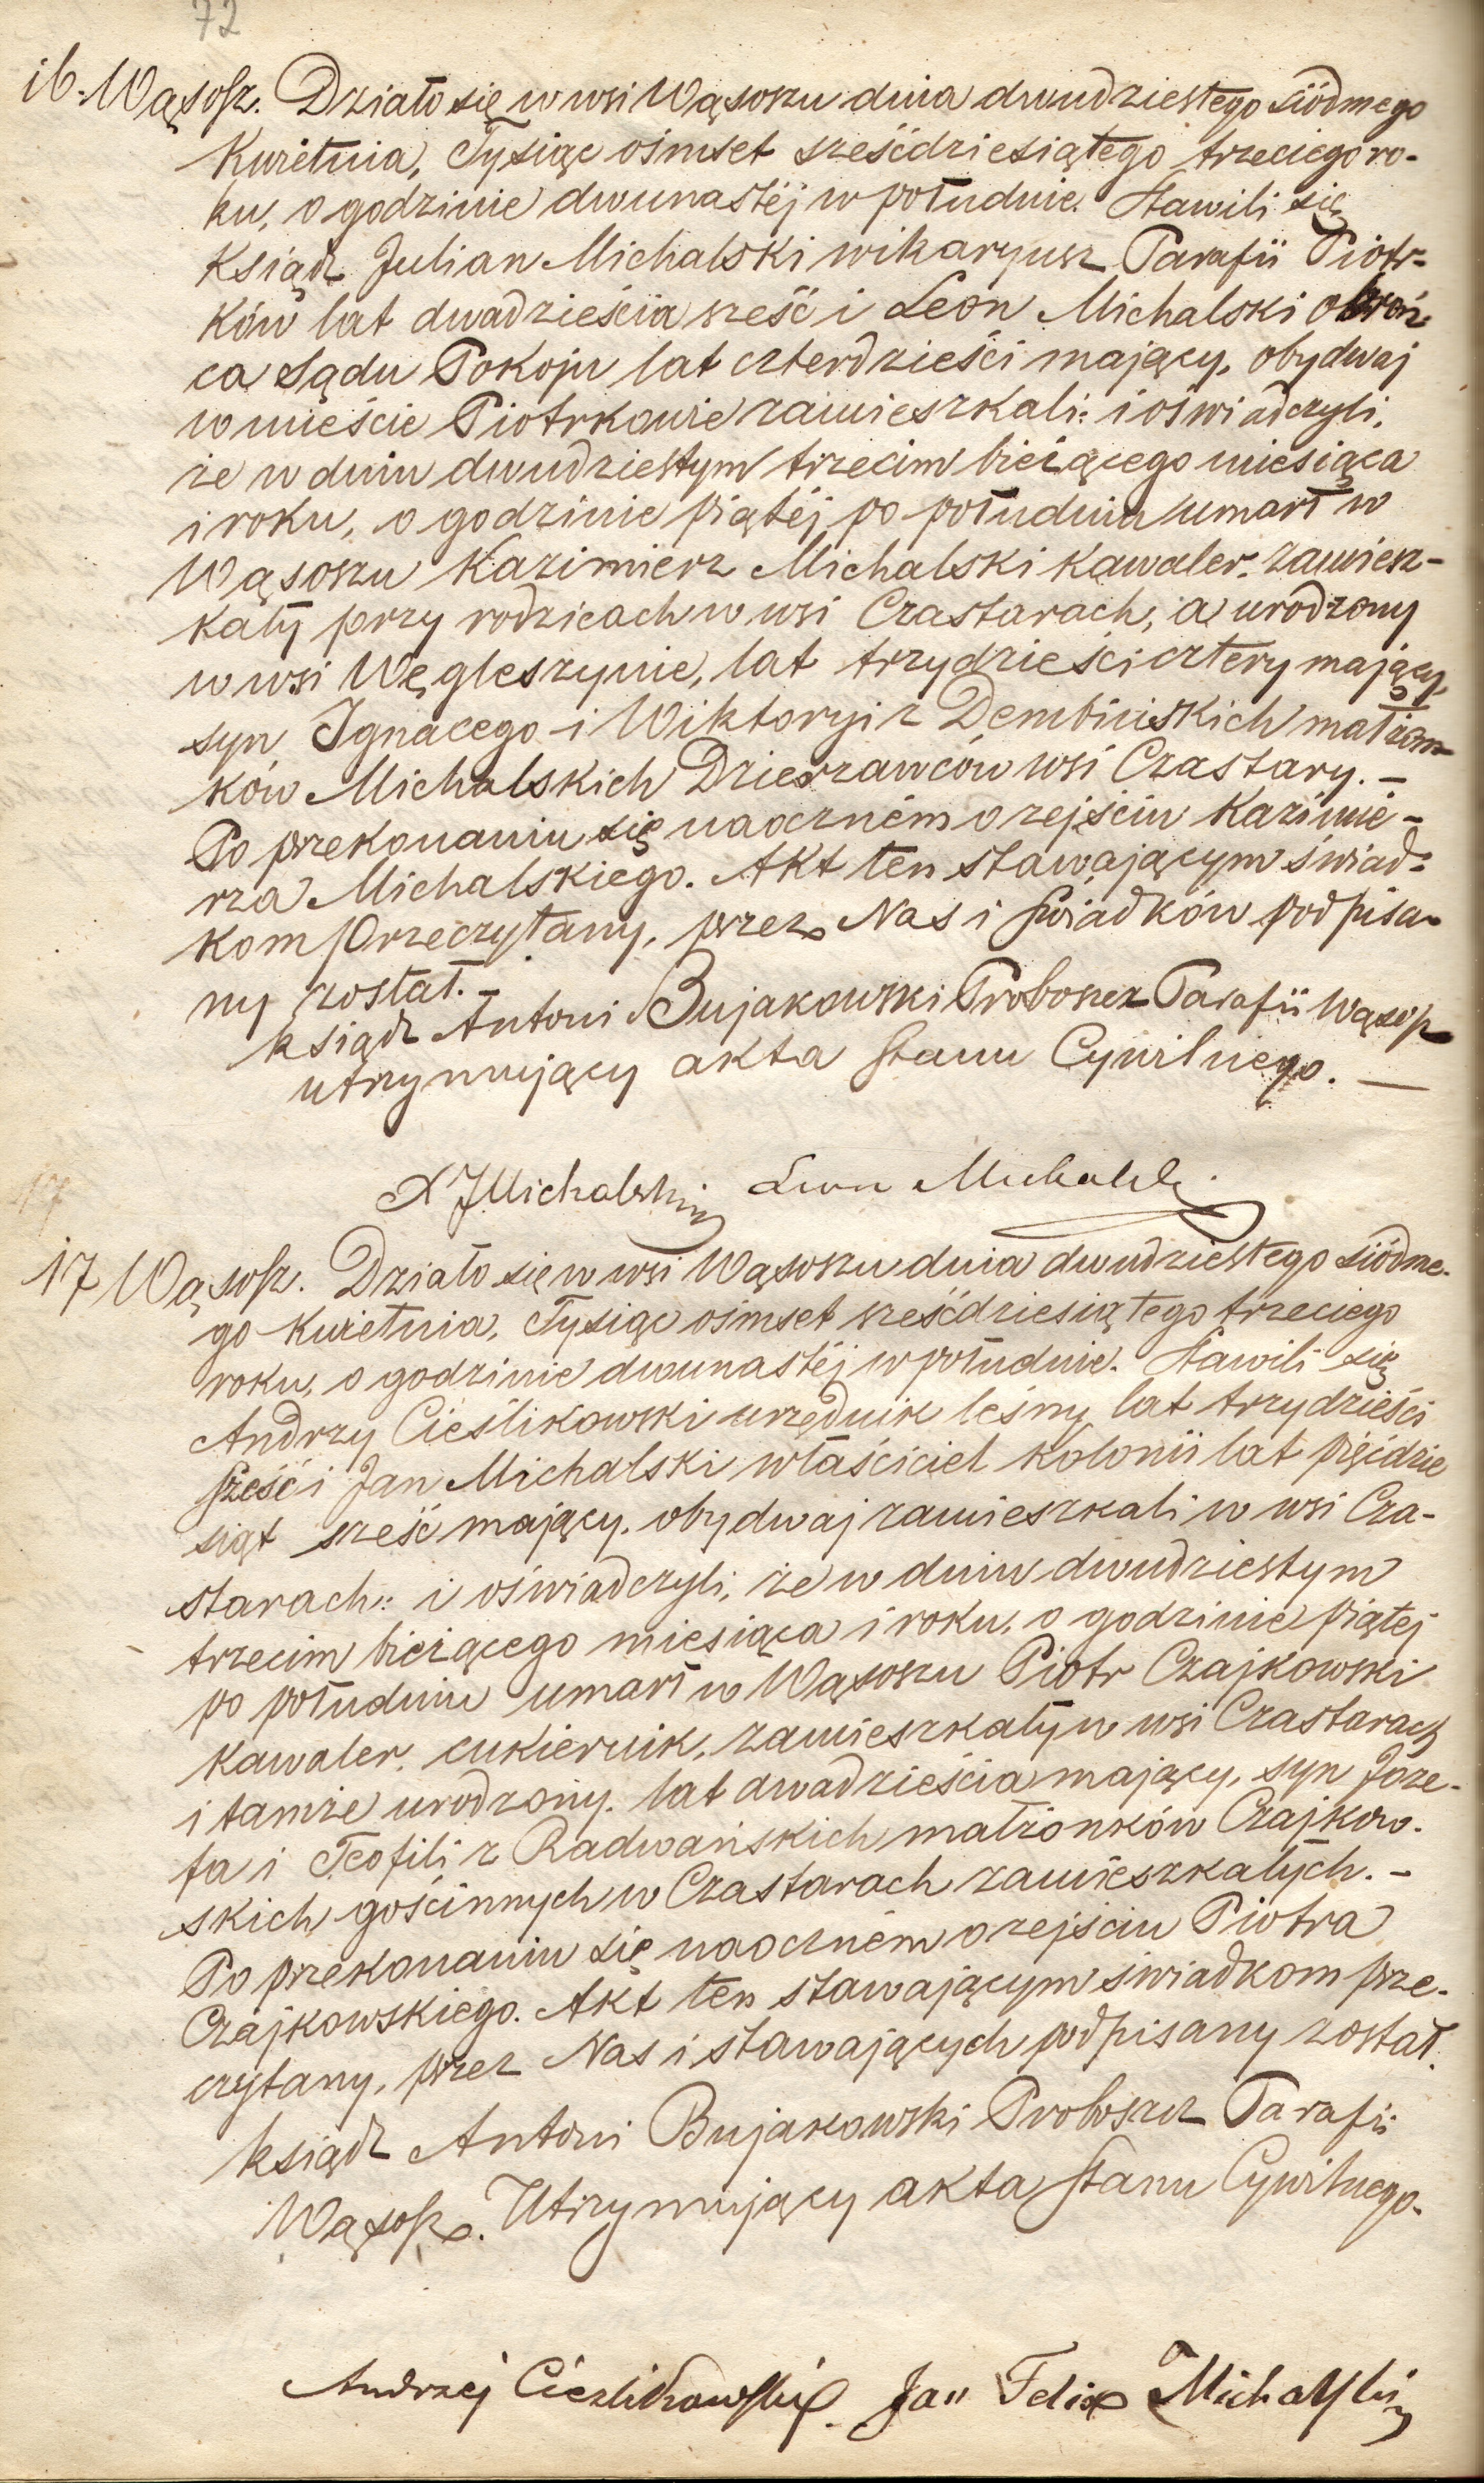 72
16. Wąsosz. Działo się w wsi Wąsoszu dnia dwudziestego siódmego
Kwietnia, Tysiąc ośmset sześćdziesiątego trzeciego ro-
ku, o godzinie dwunastéj w południe. Stawili się
Ksiądz Julian Michalski wikaryusz Parafii Piotr-
ków lat dwadzieścia sześć i Leon Michalski obroń-
ca Sądu Pokoju lat czterdzieści mający, obydwaj
w mieście Piotrkowie zamieszkali: i oświadczyli,
że w dniu dwudziestym trzecim bieżącego miesiąca
i roku, o godzinie piątéj po południu umarł w
Wąsoszu Kazimierz Michalski Kawaler. zamiesz-
kały przy rodzicach w wsi Czastarach, a urodzony
w wsi Węgleszynie, lat trzydzieści cztery mający,
syn Ignacego i Wiktoryi z Dembińskich małżon-
ków Michalskich Dzierżawców wsi Czastary. -
Po przekonaniu się naoczném o zejściu Kazimie-
rza Michalskiego. Akt ten stawającym świad-
kom przeczytany, przez Nas i świadków podpisa-
ny został. -
ksiądz Antoni Bujakowski Proboszcz Parafii Wąsosz
utrzymujący akta stanu Cywilnego. —
X J Michalski Leon Michalski
17
17 Wąsosz. Działo się w wsi Wąsoszu dnia dwudziestego siódme-
go Kwietnia, Tysiąc ośmset sześćdziesiątego trzeciego
roku, o godzinie dwunastéj w południe. Stawili się
Andrzy Cieślikowski urzędnik leśny lat trzydzieści
sześć i Jan Michalski właściciel kolonii lat pięćdzie
siąt sześć mający, obydwaj zamieszkali w wsi Cza-
starach: i oświadczyli, że w dniu dwudziestym
trzecim bieżącego miesiąca i roku, o godzinie piątej
po południu umarł w Wąsoszu Piotr Czajkowski
Kawaler, cukiernik, zamieszkały w wsi Czastarach
i tamże urodzony. lat dwadzieścia mający, syn Józe-
fa i Teofili z Radwańskich małżonków Czajkow-
skich gościnnych w Czastarach zamieszkałych. -
Po przekonaniu się naoczném o zejściu Piotra
Czajkowskiego. Akt ten stawającym świadkom prze-
czytany, przez Nas i stawających podpisany został.
ksiądz Antoni Bujakowski Proboszcz Parafii
Wąsosz. Utrzymujący akta stanu Cywilnego.
Andrzej Cieślikowski Jan Felix Michalski